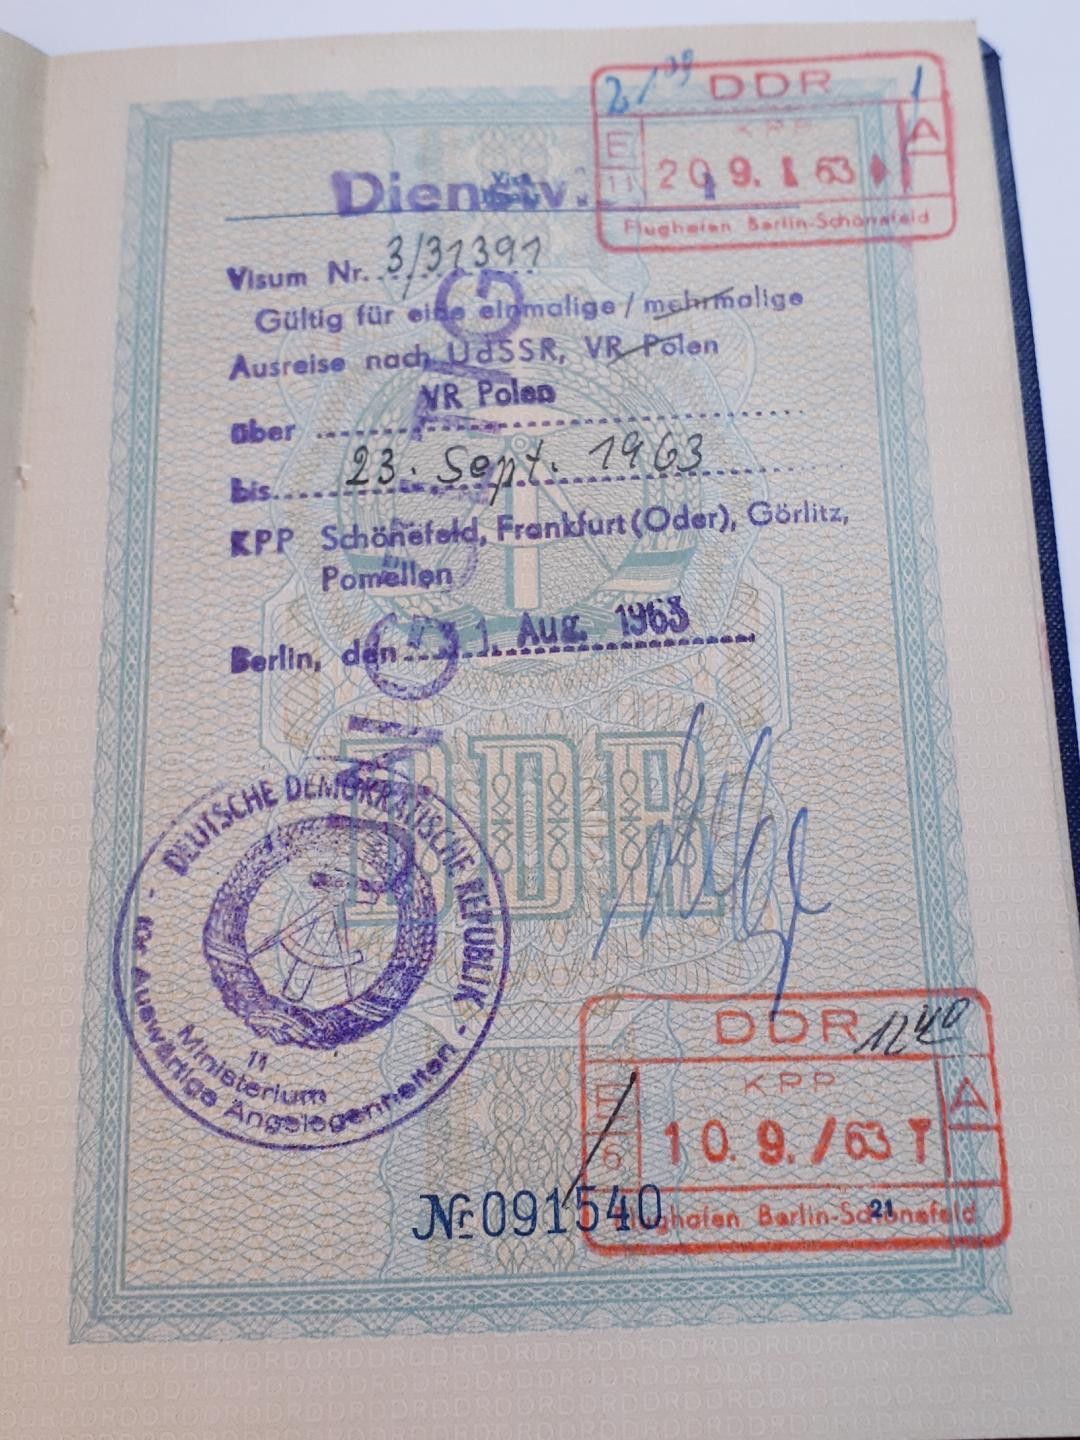 2/09 DDR 1
KPP
E A
11 20 9. 63
Flughafen Berlin-Schönefeld
Dienstv.
Visum Nr. 3/31391
Gültig für eine einmalige / mehrmalige
Ausreise nach UdSSR, VR Polen
VR Polen
über
bis 23. Sept. 1963
KPP Schönefeld, Frankfurt(Oder), Görlitz,
Pomellen
Berlin, den 31 Aug. 1963
DDR
DEUTSCHE DEMOKRATISCHE REPUBLIK
11
Ministerium
für Auswärtige Angelegenheiten
DDR 1240
KPP
E A
6 10. 9. / 63 T
Flughafen Berlin-Schönefeld
Nr 091540
21